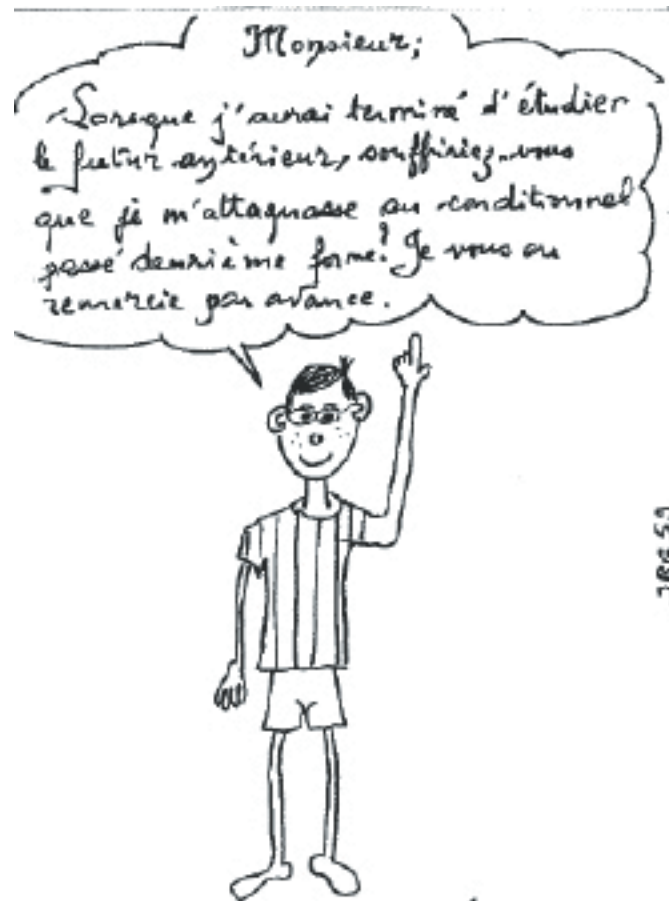 Monsieur;
Lorsque j'aurai terminé d'étudier
le futur antérieur, souffririez-vous
que je m'attaquasse au conditionnel
passé deuxième forme? Je vous en
remercie par avance.